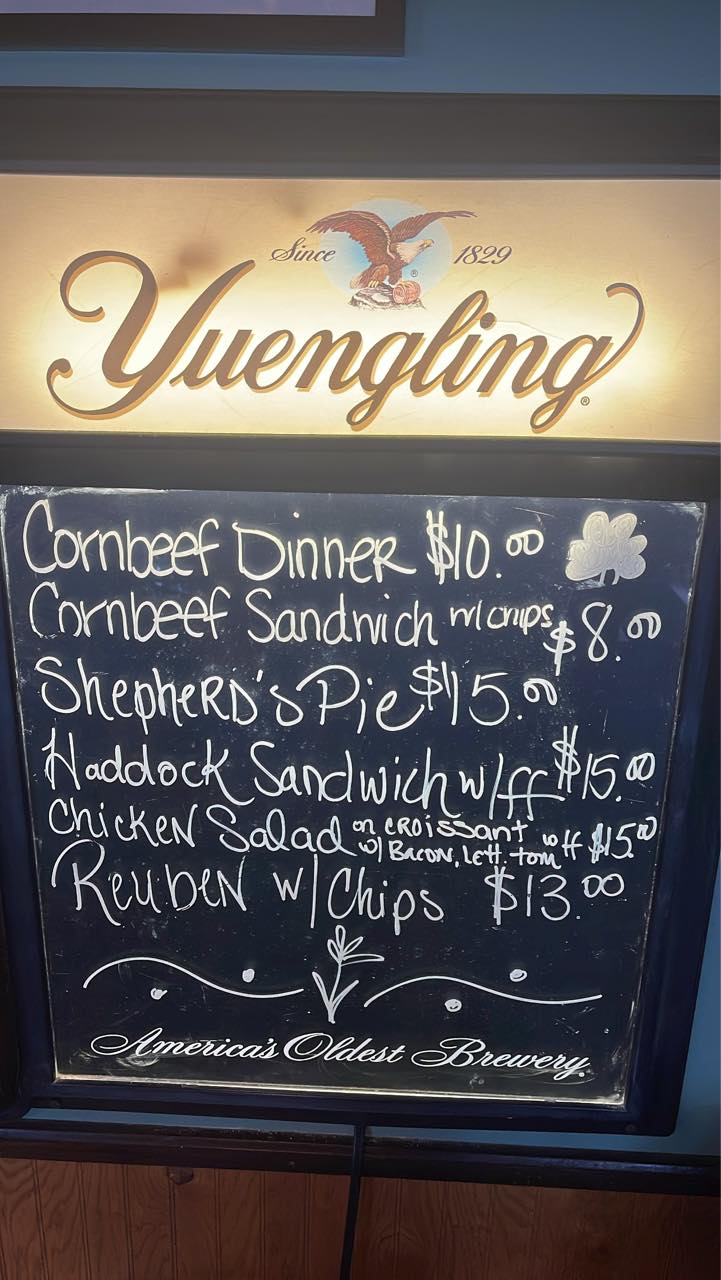 Since 1829
Yuengling®
Cornbeef Dinner $10.00
Cornbeef Sandwich w/chips $8.00
Shepherd's Pie $15.00
Haddock Sandwich w/ff $15.00
Chicken Salad on croissant w/ Bacon, Lett. tom w ff $15.00
Reuben w/Chips $13.00
America's Oldest Brewery.